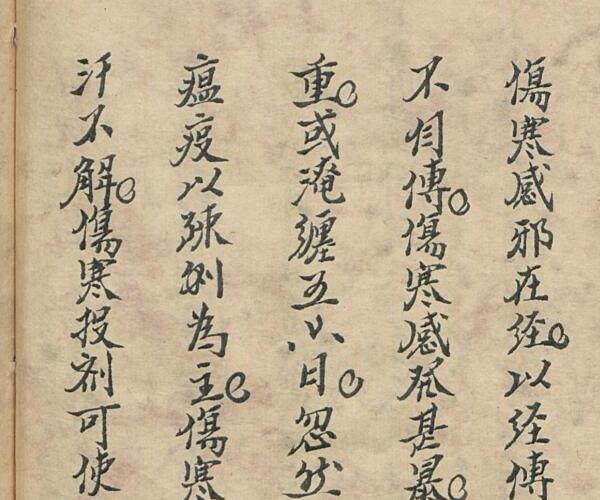 傷寒感邪在経。以経傳
不自傳。傷寒感發甚暴。
重。或淹纏五六日。忽然
瘟疫以疎利為主。傷寒
汗不解。傷寒投剤可使